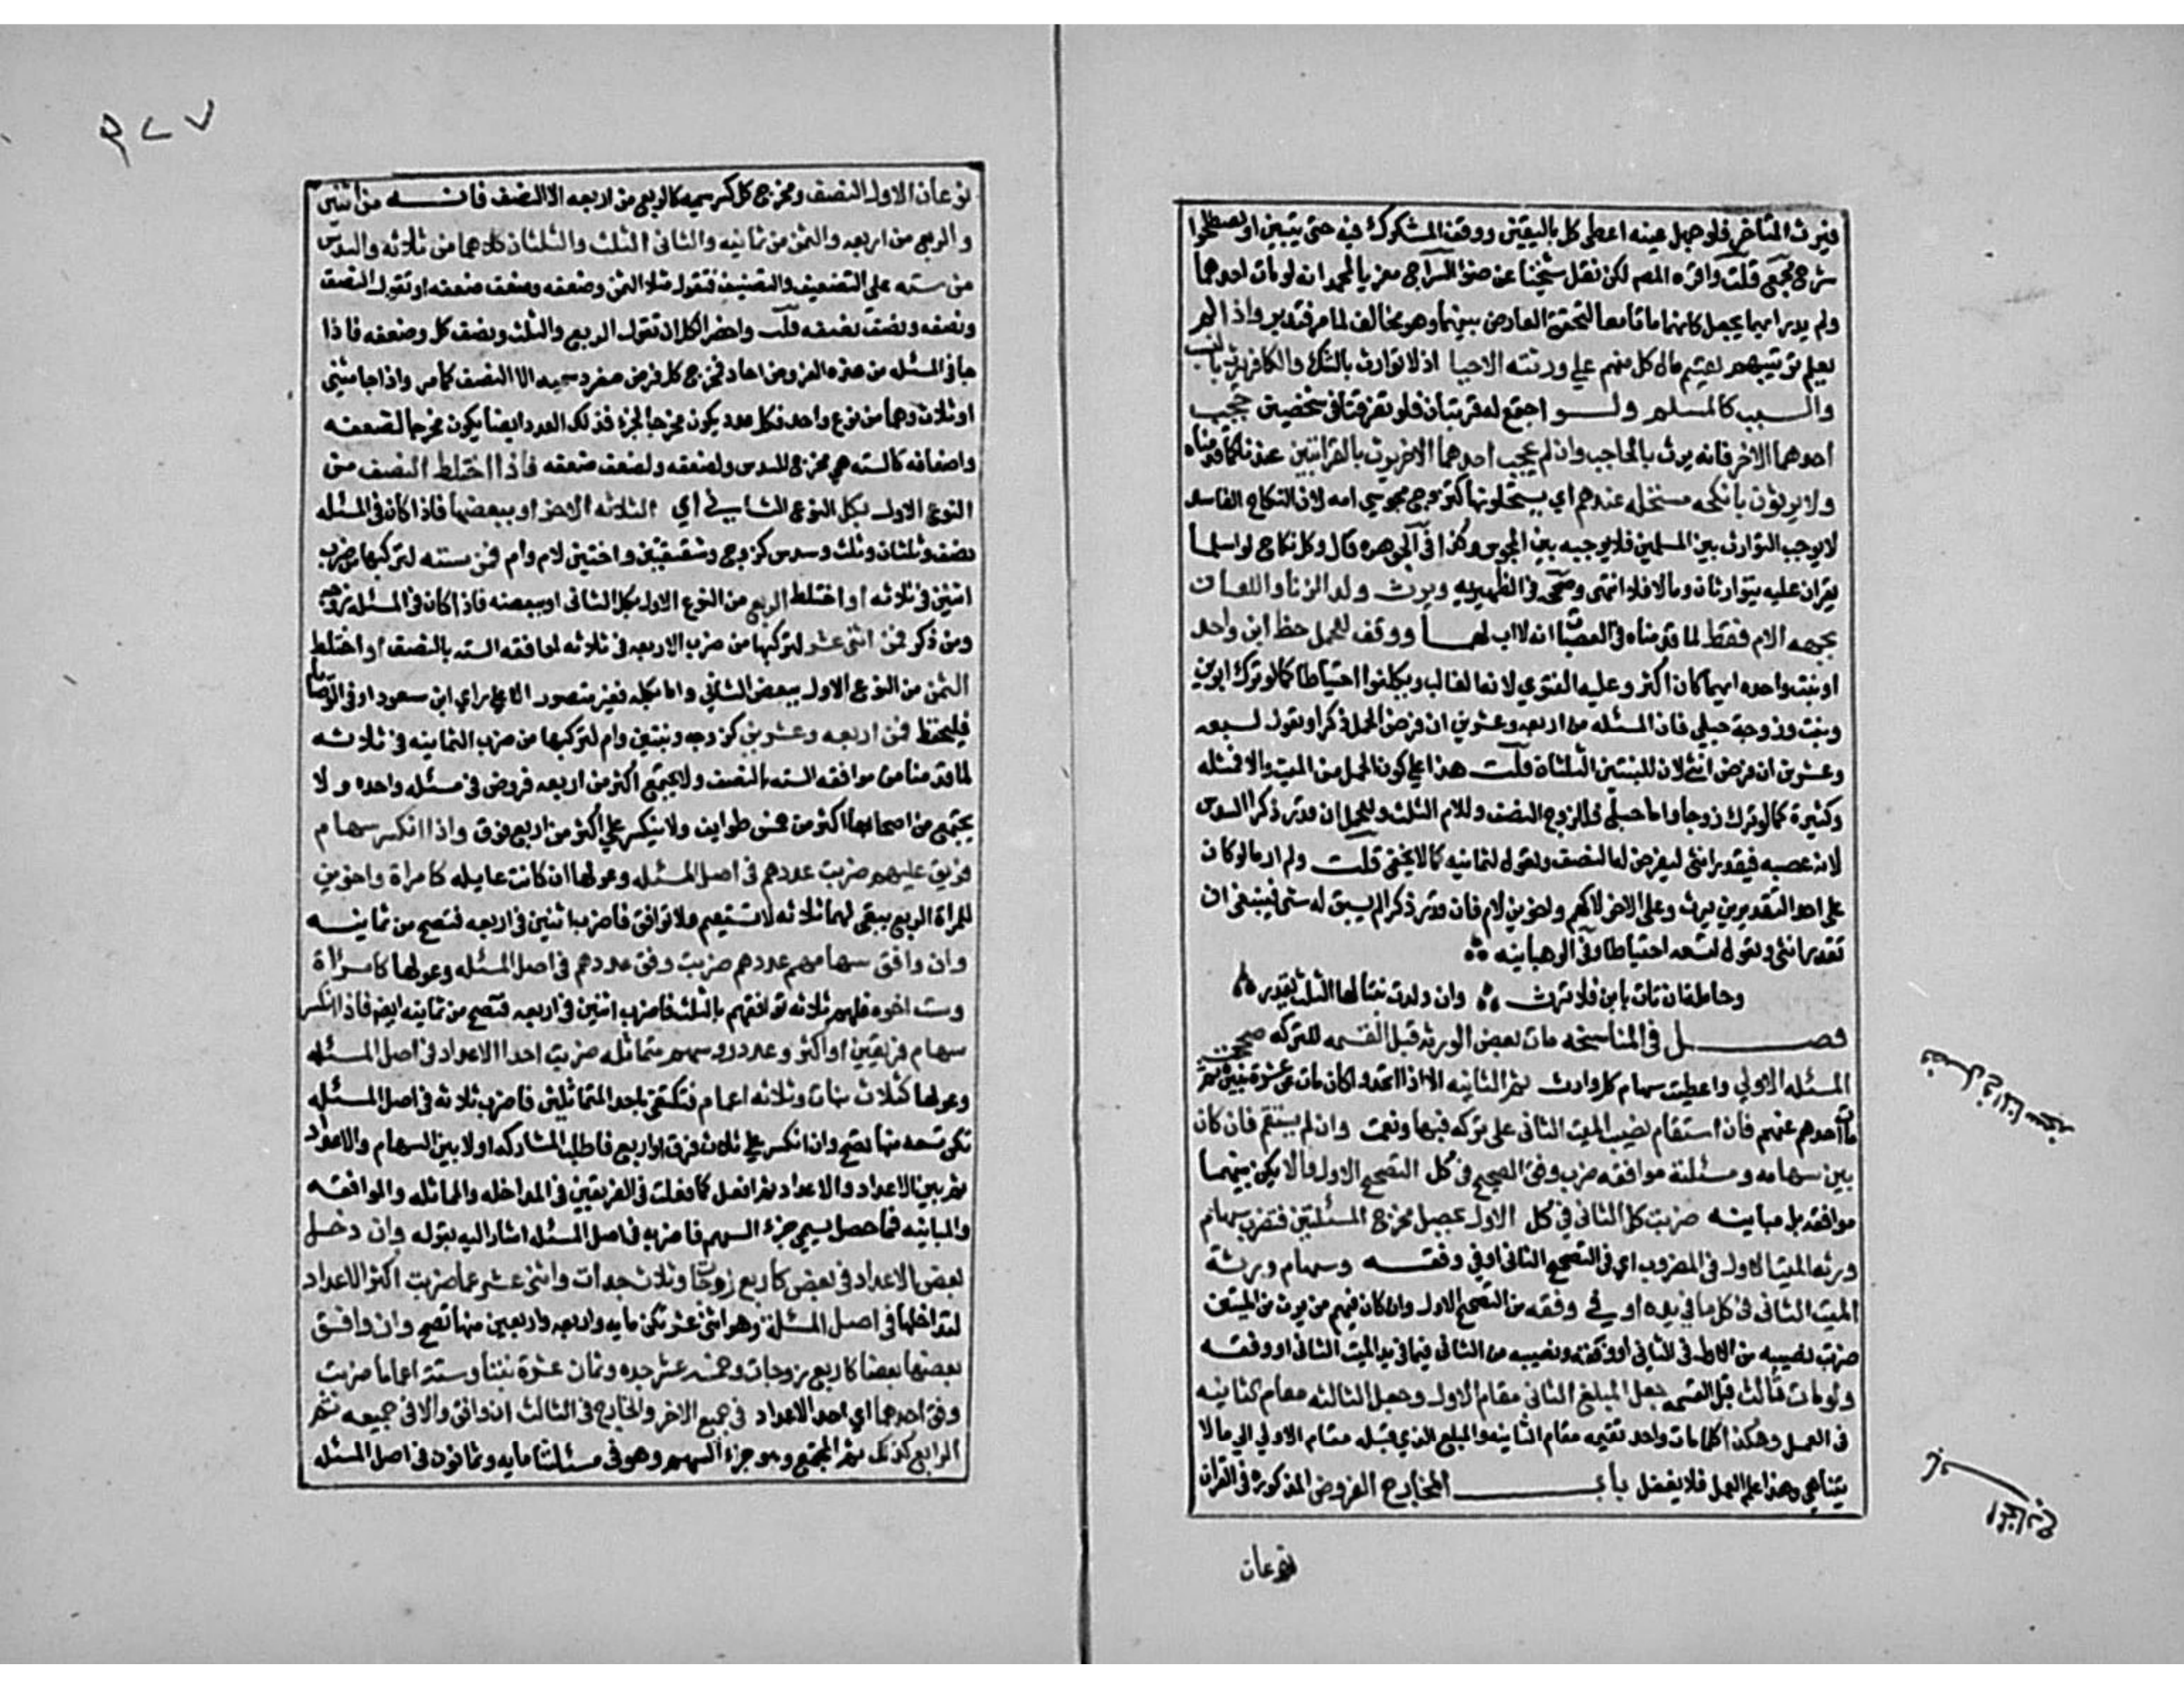 فيرث المتأخر فلو جهل عينه اعطى كل باليقين ووقف المشكوك فيه حتى يتبين او يصطلحوا
شرح مجمع قلت واقره المص لكن نقل شيخنا عن ضوء السراج معزيا لمحمد انه لو مات احدهما
ولم يدر ايهما يجعل كانهما ماتا معا لتحقق التعارض بينهما وهو مخالف لما مر فتدبر واذا لم
يعلم ترتيبهم يقسم مال كل منهم على ورثته الاحيا اذ لا توارث بالشك والكافر يرث بالنسب
والسبب كالمسلم ولو اجتمع له قرابتان فلو تفرقتا في شخصين حجب
احدهما الاخر فانه يرث بالحاجب وان لم يحجب احدهما الاخر يرث بالقرابتين عندنا كما قدمناه
ولا يرثون بانكحه مستحله عندهم اي يستحلونها كتزوج مجوسي امه لان النكاح الفاسد
لا يوجب التوارث بين المسلمين فلا يوجبه بين المجوس وكذا في الجوهره قال وكل نكاح لو اسلما
يقران عليه يتوارثان وما لا فلا انتهى وصححه في الظهيريه ويرث ولد الزنا واللعان
بجهه الام فقط لما قدمناه في العصبات انه لا اب لهما ووقف للحمل حظ ابن واحد
او بنت واحده ايهما كان اكثر وعليه الفتوي لانه الغالب ويكلفوا احتياطا كما لو ترك ابوين
وبنت وزوجة حبلى فان المسئله من اربعه وعشرين ان فرض الحمل ذكرا وتعول لسبعه
وعشرين ان فرض انثى لان للبنتين الثلثان قلت هذا على كون الحمل من الميت والا فمثله
وكثيرة كما لو ترك زوجا واما حبلى فللزوج النصف وللام الثلث وللحمل ان قدر ذكرا السدس
لانه عصبه فيقدر انثى ليفرض لها النصف وتعول لثمانيه كما لا يخفى قلت ولم ار ما لو كان
على احد التقديرين يرث وعلى الاخر لا كهم واخوين لام فان قدر ذكرا لم يبق له شي فينبغى ان
تقدير انثى وتعول لتسعه احتياطا وفي الوهبانيه
وحاملة ان تات بابن فلا ترث وان ولدت بنتا لها الثلث يقدر
فصل في المناسخه مات بعض الورثه قبل القسمه للتركه صححت
المسئله الاولي واعطيت سهام كل وارث ثم الثانيه الا اذا اتحدوا كان مات عن عشرة بنين ثم
مات احدهم عنهم فان استقام نصيب الميت الثانى على تركه فبها ونعمت وان لم يستقم فان كان
بين سهامه ومسئلته موافقه ضرب وفق الصحيح في كل التصحيح الاول والا يكن بينهما
موافقه بل مباينه ضربت كل الثانى في كل الاول يحصل مخرج المسئلتين فتضرب سهام
ورثه الميت الاول في المضروب اي في التصحيح الثانى او في وفقه وسهام ورثة
الميت الثانى في كل ما في يده او في وفقه من التصحيح الاول وان كان فيهم من يرث من الميتين
ضرب نصيبه من الاول في الثانى او وفقه ونصيبه من الثانى فيما في يد الميت الثانى او وفقه
ولو مات ثالث قبل القسمه جعل المبلغ الثانى مقام الاول وجعل الثالثه مقام الثانيه
في العمل وهكذا كلما مات واحد تقيمه مقام الثانيه والمبلغ الذي قبله مقام الاولي الى ما لا
يتناهى وهذا علم العمل فلا يغفل باب المخارج الفروض المذكوره في القران
نوعان
فصل في المناسخه
٢٧٧
نوعان الاول النصف ومخرج كل كسر سميه كالربع من اربعه الا النصف فانه من اثنين
والربع من اربعه والثمن من ثمانيه والثانى الثلث والثلثان كلاهما من ثلاثه والسدس
من سته على التضعيف والتنصيف فتقول مثلا الثمن وضعفه وضعف ضعفه او تقول النصف
ونصفه ونصف نصفه قلت واخصر الكل ان تقول الربع والثلث ونصف كل وضعفه فاذا
جا في المسئله من هذه الفروض احاد فمخرج كل فرض منفرد سميه الا النصف كما مر واذا جا مثنى
او ثلاث وهما من نوع واحد فكل عدد يكون مخرجا لجزء فذلك العدد ايضا يكون مخرجا لضعفه
واضعافه كالسته هى مخرج للسدس ولضعفه ولضعف ضعفه فاذا اختلط النصف من
النوع الاول بكل النوع الثاني اي الثلاثه الاخر او ببعضها فاذا كان في المسئله
نصف وثلثان وثلث وسدس كزوج وشقيقتين واختين لام وام فمن سته لتركبها من ضرب
اثنين في ثلاثه او اختلط الربع من النوع الاول بكل الثانى او ببعضه فاذا كان في المسئله زوجه
ومن ذكر فمن اثنى عشر لتركبها من ضرب الاربعه في ثلاثه لموافقه السته بالنصف او اختلط
الثمن من النوع الاول ببعض الثاني واما بكله فغير متصور الا على راي ابن مسعود او في الوصايا
فليحفظ فمن اربعه وعشرين كزوجه وبنتين وام لتركبها من ضرب الثمانيه في ثلاثه
لما قدمنا من موافقه السته بالنصف ولا يجتمع اكثر من اربعه فروض في مسئله واحده ولا
يجتمع من اصحابها اكثر من خمس طوايف ولا ينكسر على اكثر من اربع فرق واذا انكسر سهام
فريق عليهم ضربت عددهم في اصل المسئله وعولها ان كانت عايله كامراة واخوين
للمراة الربع يبقى لهما ثلاثه لا تستقيم ولا توافق فاضرب اثنين في اربعه فتصح من ثمانيه
وان وافق سهامهم عددهم ضربت وفق عددهم في اصل المسئله وعولها كامراة
وست اخوه فلهم ثلاثه توافقهم بالثلث فاضرب اثنين في اربعه فتصح من ثمانيه ايضا فاذا انكسر
سهام فريقين او اكثر وعدد روسهم متماثله ضربت احد الاعداد في اصل المسئله
وعولها كثلاث بنات وثلاثه اعمام فتكتفى باحد المتماثلين فاضرب ثلاثه في اصل المسئله
تكن تسعه منها تصح وان انكسر على ثلاث فرق او اربع فاطلب المشاركه اولا بين السهام والاعداد
ثم بين الاعداد والاعداد ثم افعل كما فعلت في الفريقين في المداخله والمماثله والموافقه
والمباينه فما حصل يسمي جزء السهم فاضربه في اصل المسئله اشار اليه بقوله وان دخل
بعض الاعداد في بعض كاربع زوجات وثلاث جدات واثنى عشر عما ضربت اكثر الاعداد
لتداخلها في اصل المسئلة وهو اثنى عشر تكن مايه واربعه واربعين منها تصح وان وافق
بعضها بعضا كاربع زوجات وخمسه عشر جده وثمان عشرة بنتا وستة اعمام ضربت
وفق احدهما اي احد الاعداد في جميع الاخر والخارج في الثالث ان وافق والا في جميعه ثم
الرابع كذلك ثم المجتمع وهو جزء السهم وهو في مسئلتنا مايه وثمانون في اصل المسئله